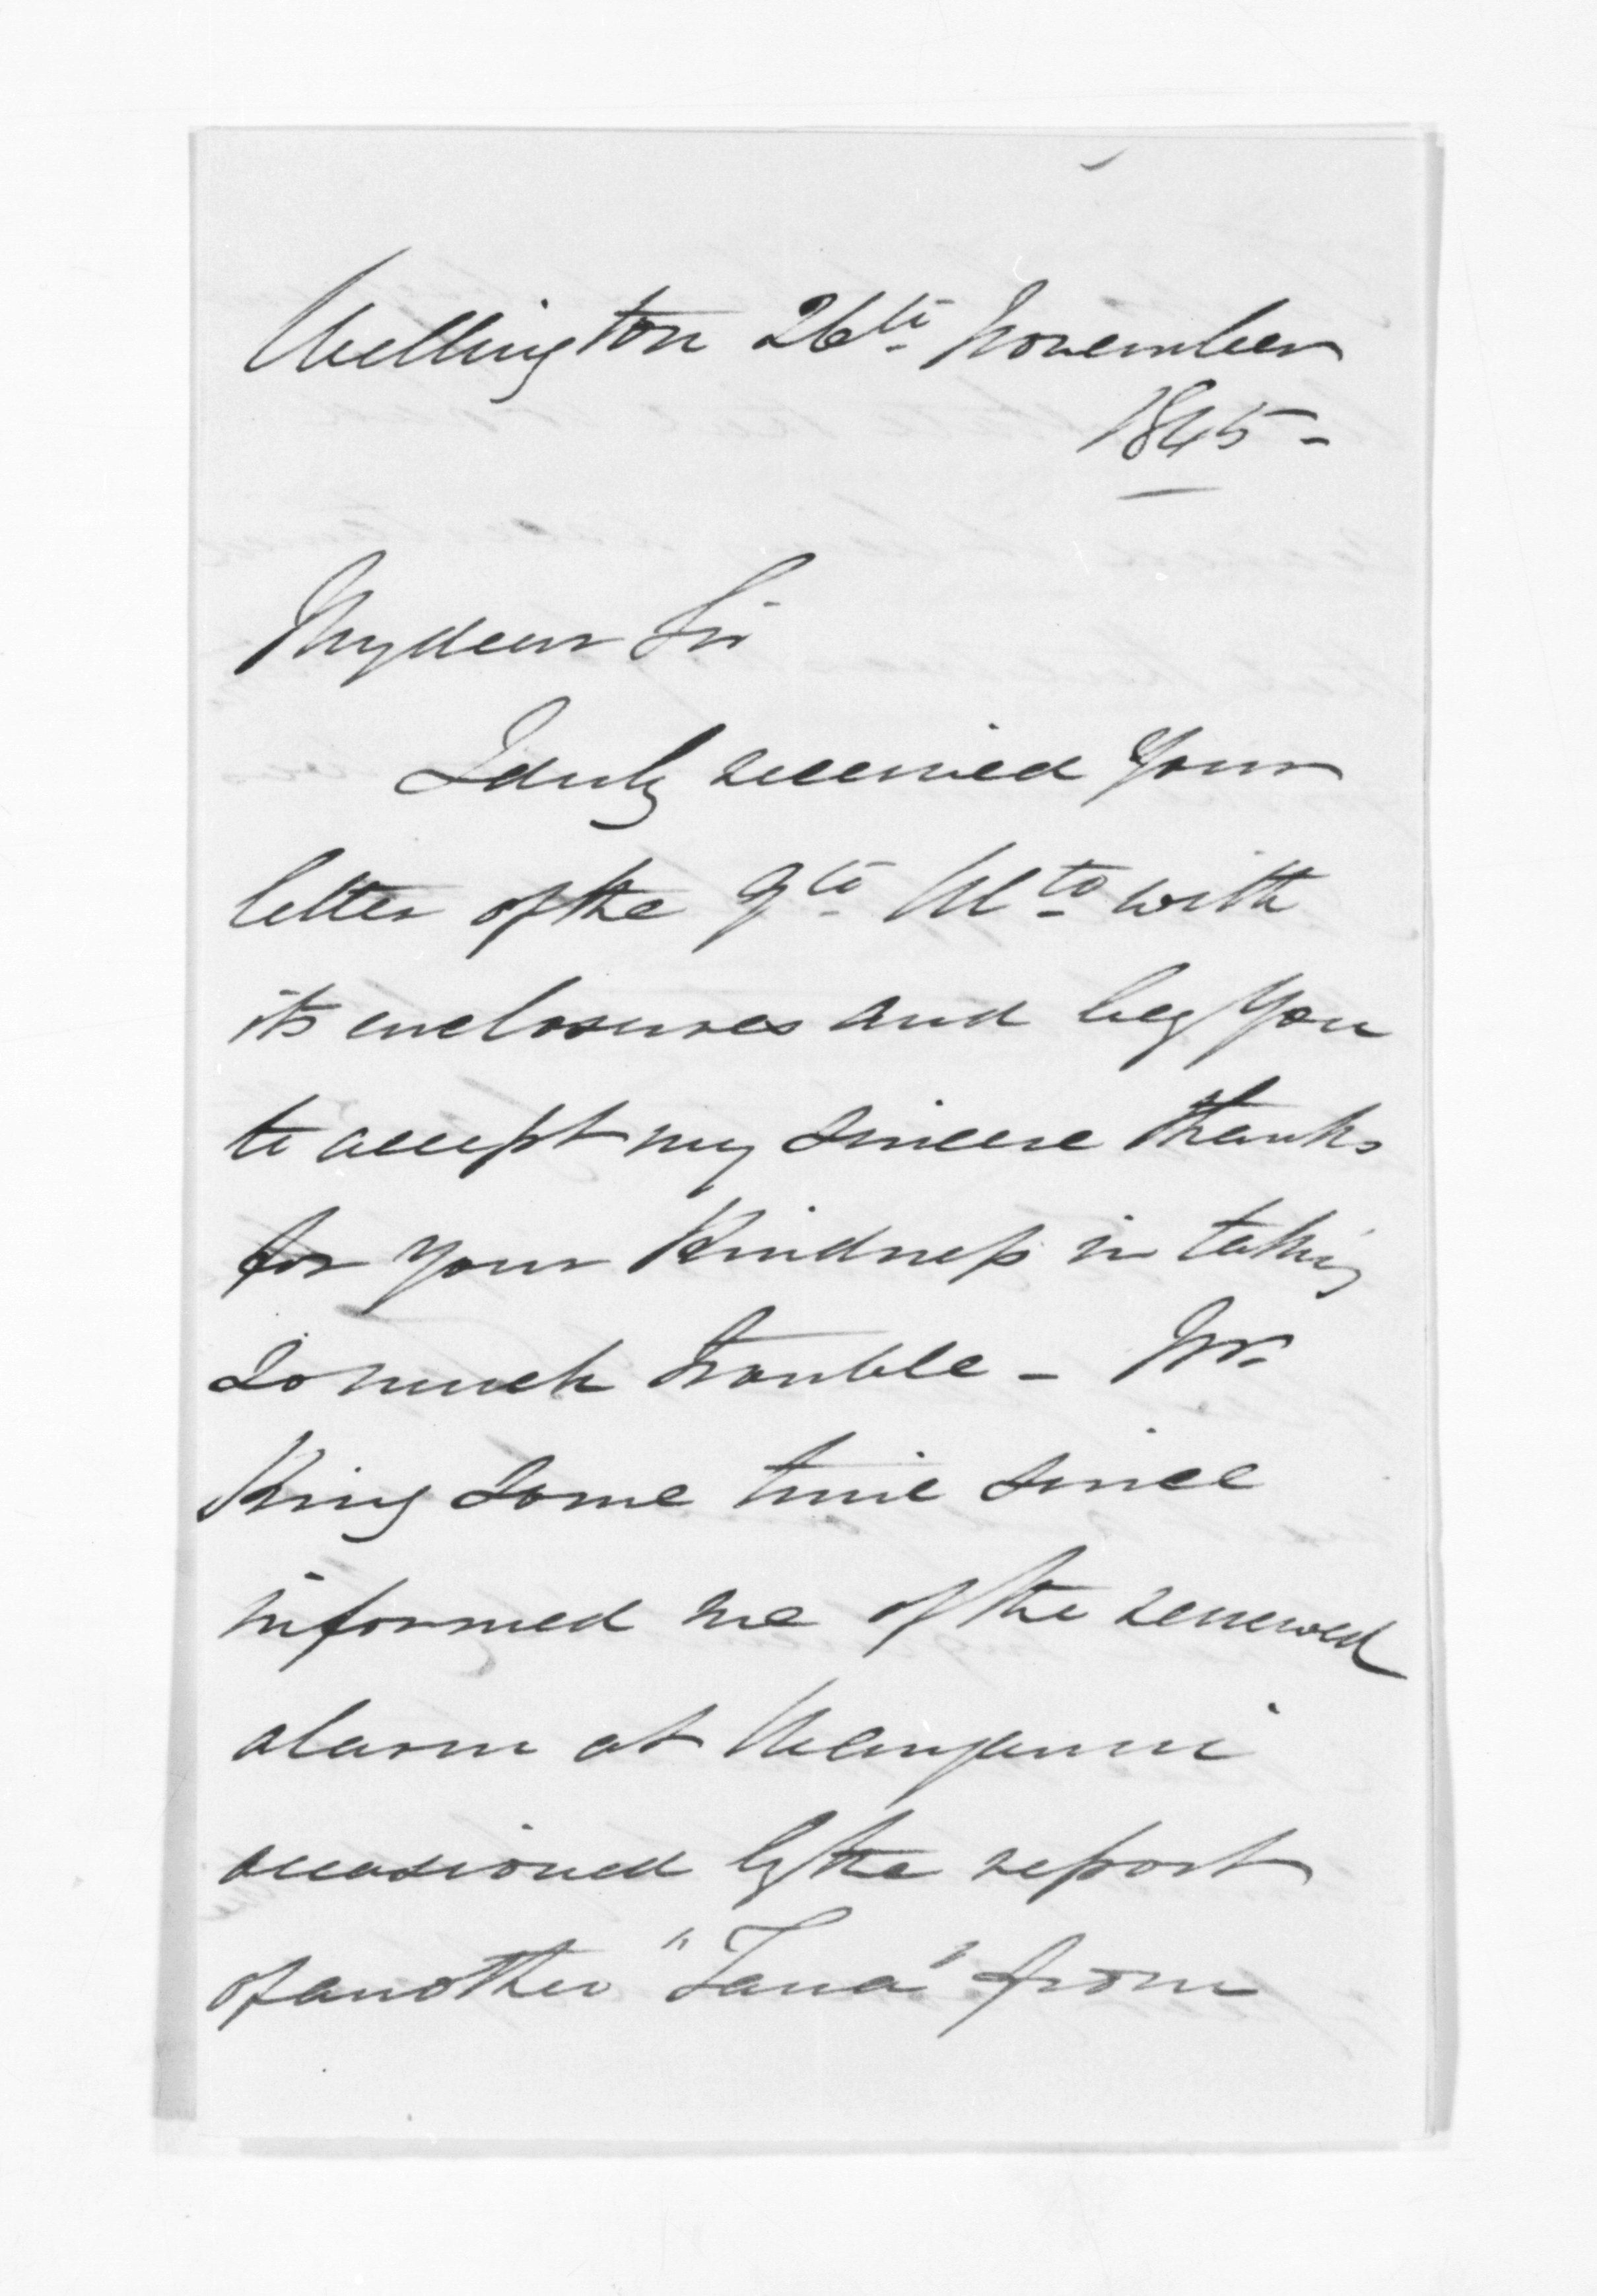 Wellington 26th November
1845 -
My dear Sir
I duly received your
letter of the 9th Ulto with
its enclosures and beg you
to accept my sincere thanks
for your kindness in taking
so much trouble - Mr.
King some time since
informed me of the renewed
alarm at Wanganui
occasioned by the report
of another "Taua" from